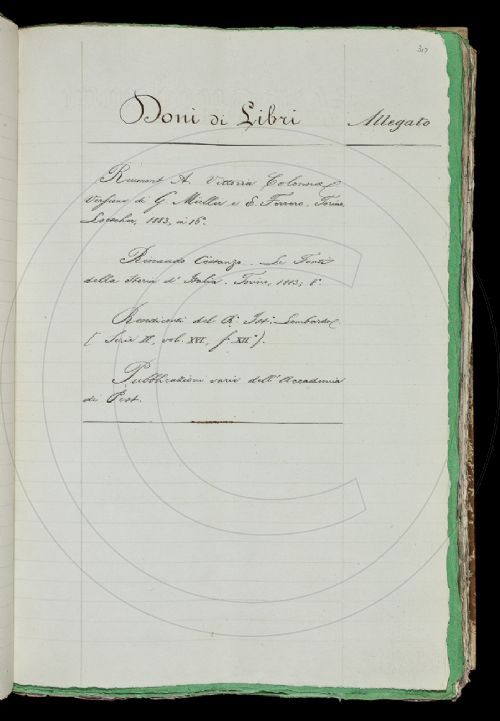 30
Doni di Libri
Allegato
Reumont A. Vittoria Colonna
Versione di G. Müller e E. Ferrero. Torino
Loescher, 1883, in 16°.
Rinaudo Costanzo. Le Fonti
della Storia d'Italia. Torino, 1883; 8°
Rendiconti del R. Ist. Lombardo
(Serie II, vol. XVI, f. XII°).
Pubblicazioni varie dell'Accademia
di Pest.